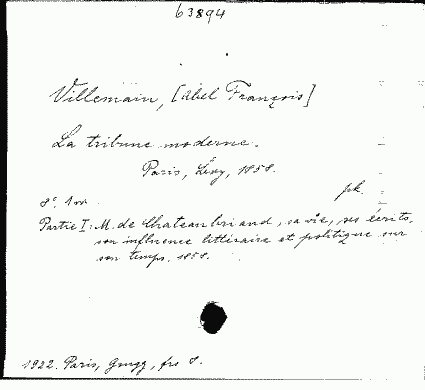 63894
Villemain, [Abel François]
La tribune moderne.
Paris, Lévy, 1858.
pk.
8°. 1 vol.
Partie I: M. de Chateaubriand, sa vie, ses écrits,
son influence littéraire et politique sur
son temps. 1858.
1922. Paris, frs 8.